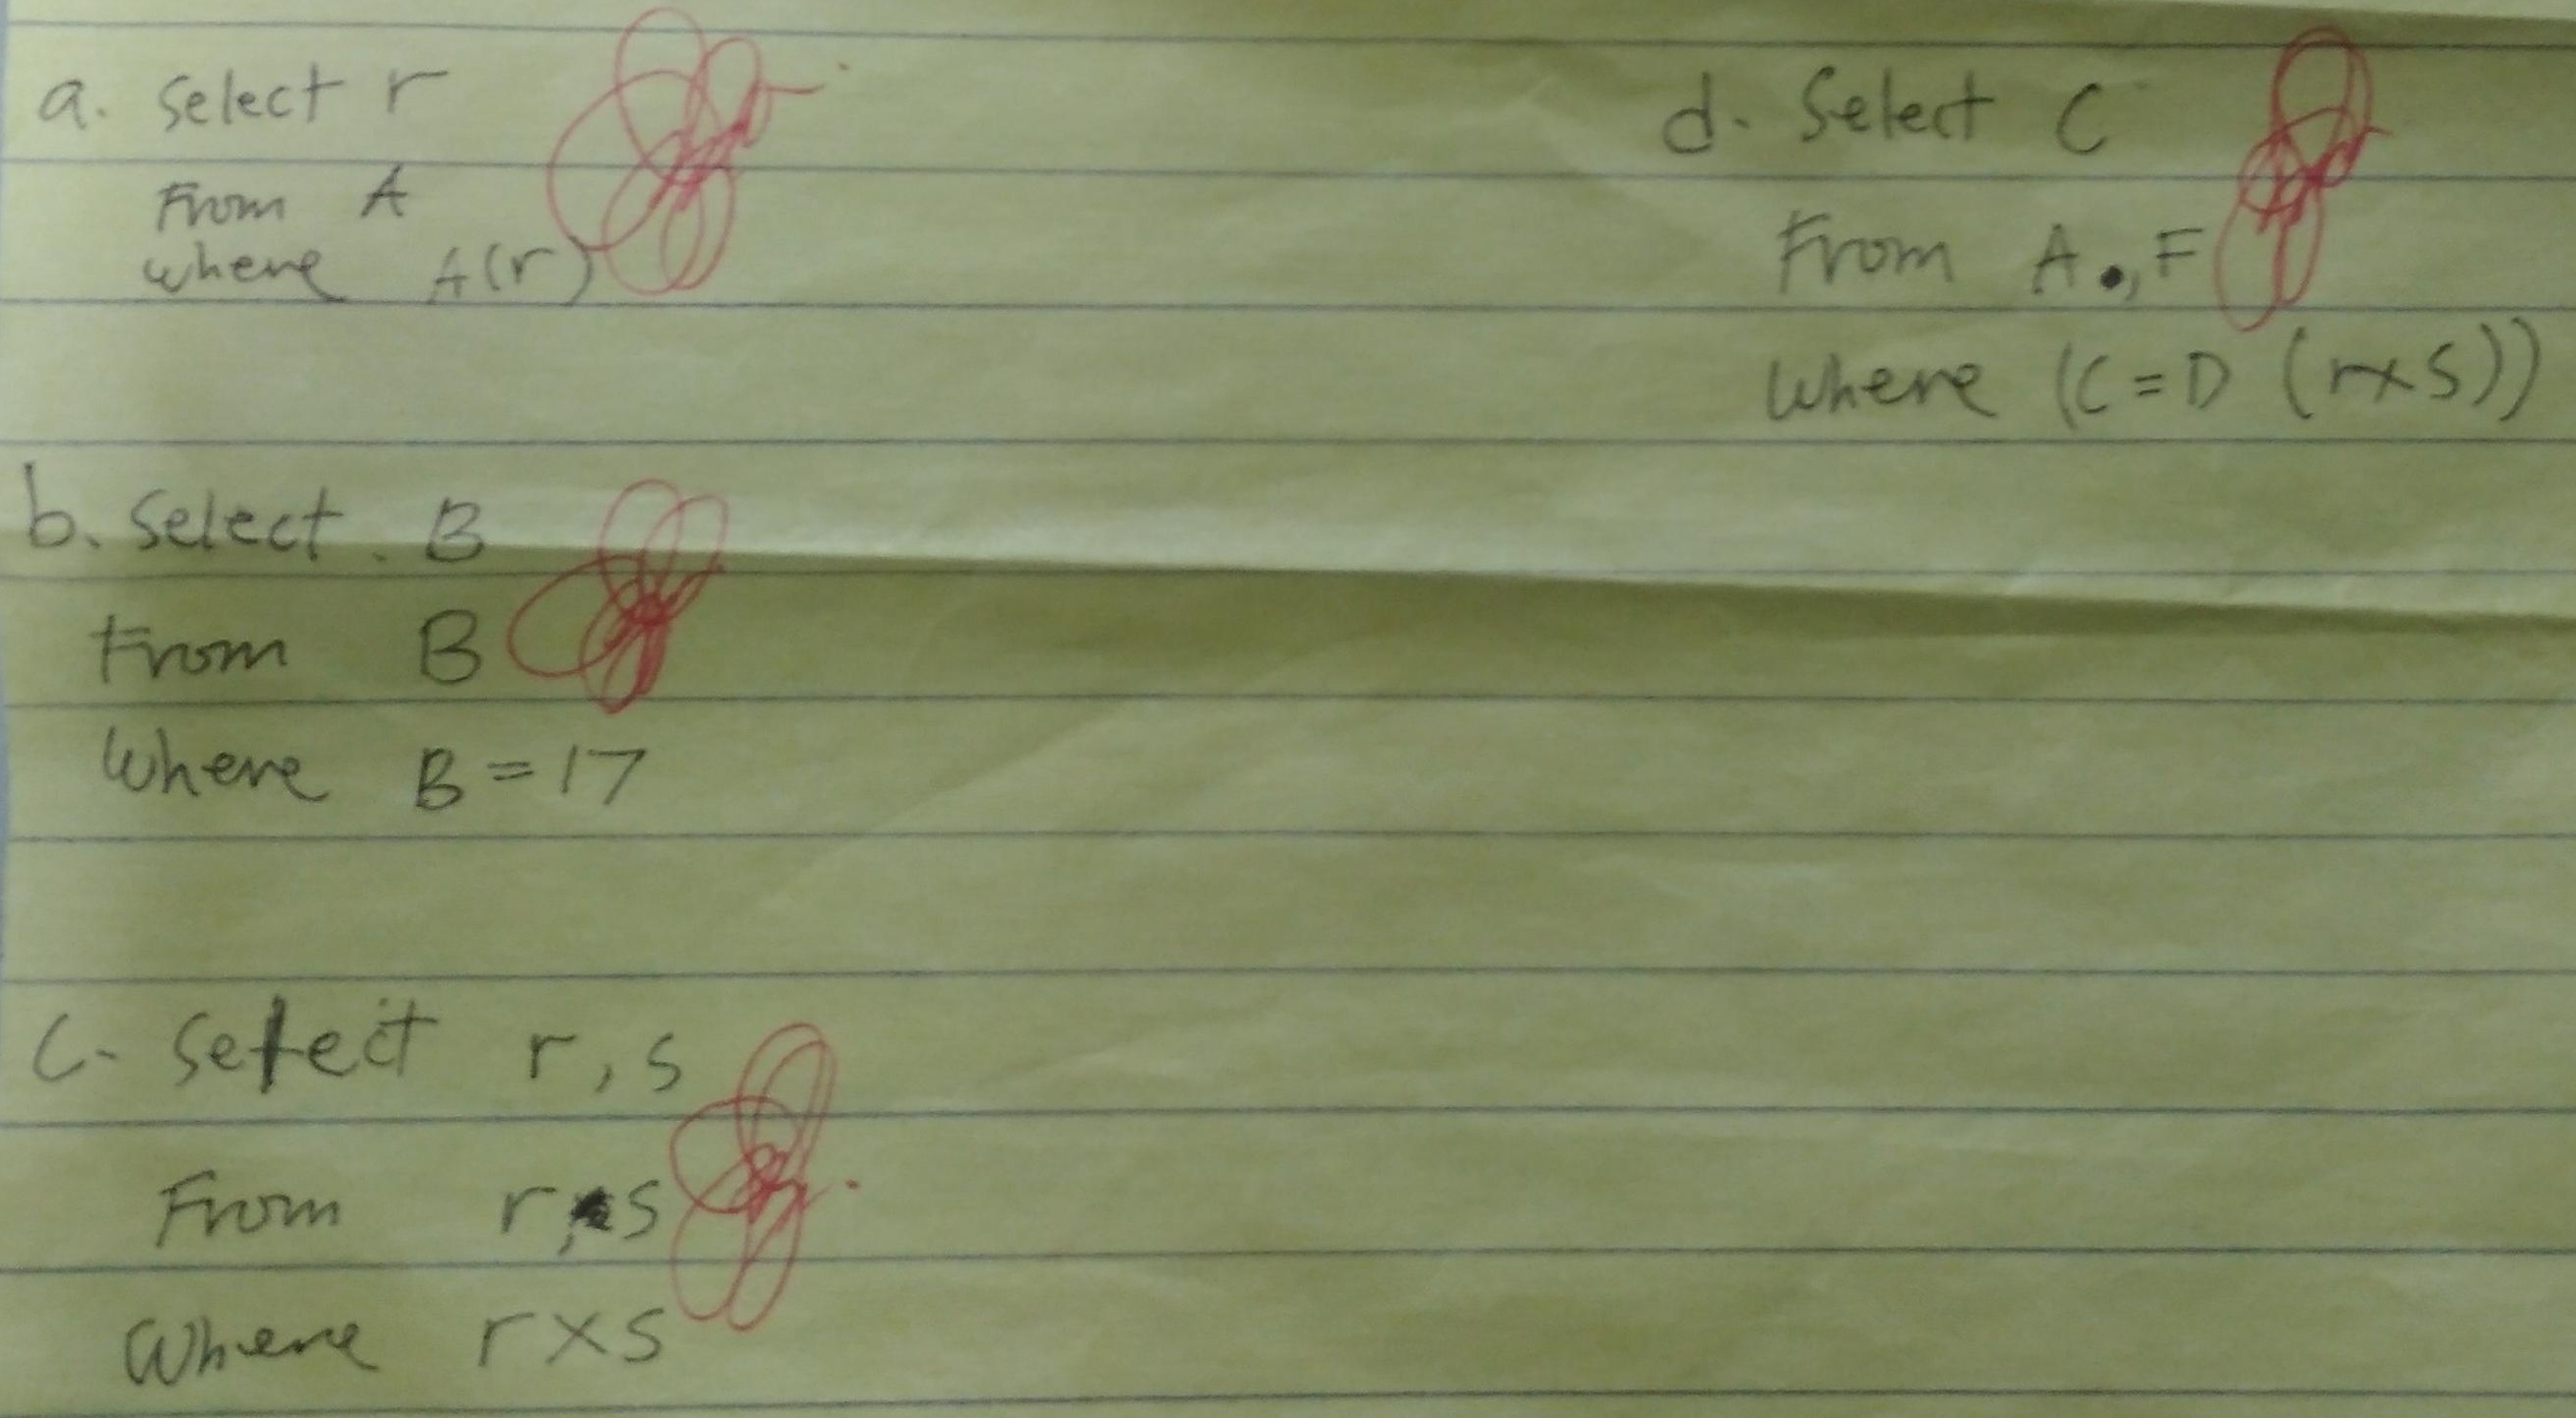 a. select r
From A
where A(r)
b. select B
From B
Where B = 17
c. select r, s
From r, s
Where r x s
d. Select C
From A, F
Where (C = D (r x s))